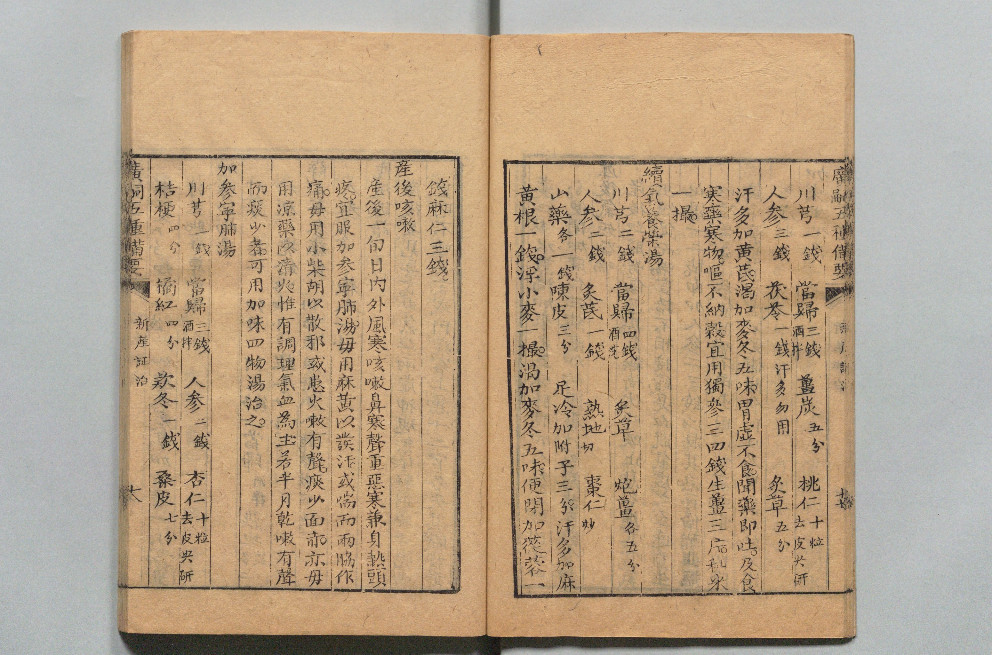 廣嗣五種備要
川芎一錢　當歸三錢酒拌　薑炭五分　桃仁十粒去皮尖研
人參三錢　茯苓一錢汗多勿用　炙草五分
汗多加黃芪渴加麥冬五味胃虛不食聞藥即吐及食
寒藥寒物嘔不納穀宜用獨參三四錢生薑三片水
一撮
續氣養榮湯
川芎二錢　當歸四錢酒洗　炙草　炮薑各五分
人參二錢　炙芪一錢　熟地切　棗仁炒
山藥各一錢陳皮三分　足冷加附子三分汗多加麻
黃根一錢浮小麥一撮渴加麥冬五味便閉加蓯蓉一
錢麻仁三錢
產後咳嗽
產後一旬日內外風寒咳嗽鼻寒聲重惡寒兼身熱頭
疼宜服加參寧肺湯毋用麻黃以發汗或喘而兩脇作
痛毋用小柴胡以散邪或患火嗽有聲痰少面赤亦毋
用涼藥以清火惟有調理氣血為主若半月乾嗽有聲
而痰少者可用加味四物湯治之
加參寧肺湯
川芎　錢　當歸三錢酒拌　人參二錢　杏仁十粒去皮尖研
桔梗四分　橘紅四分　款冬一錢　桑皮七分
廣嗣五種備要
新產証治